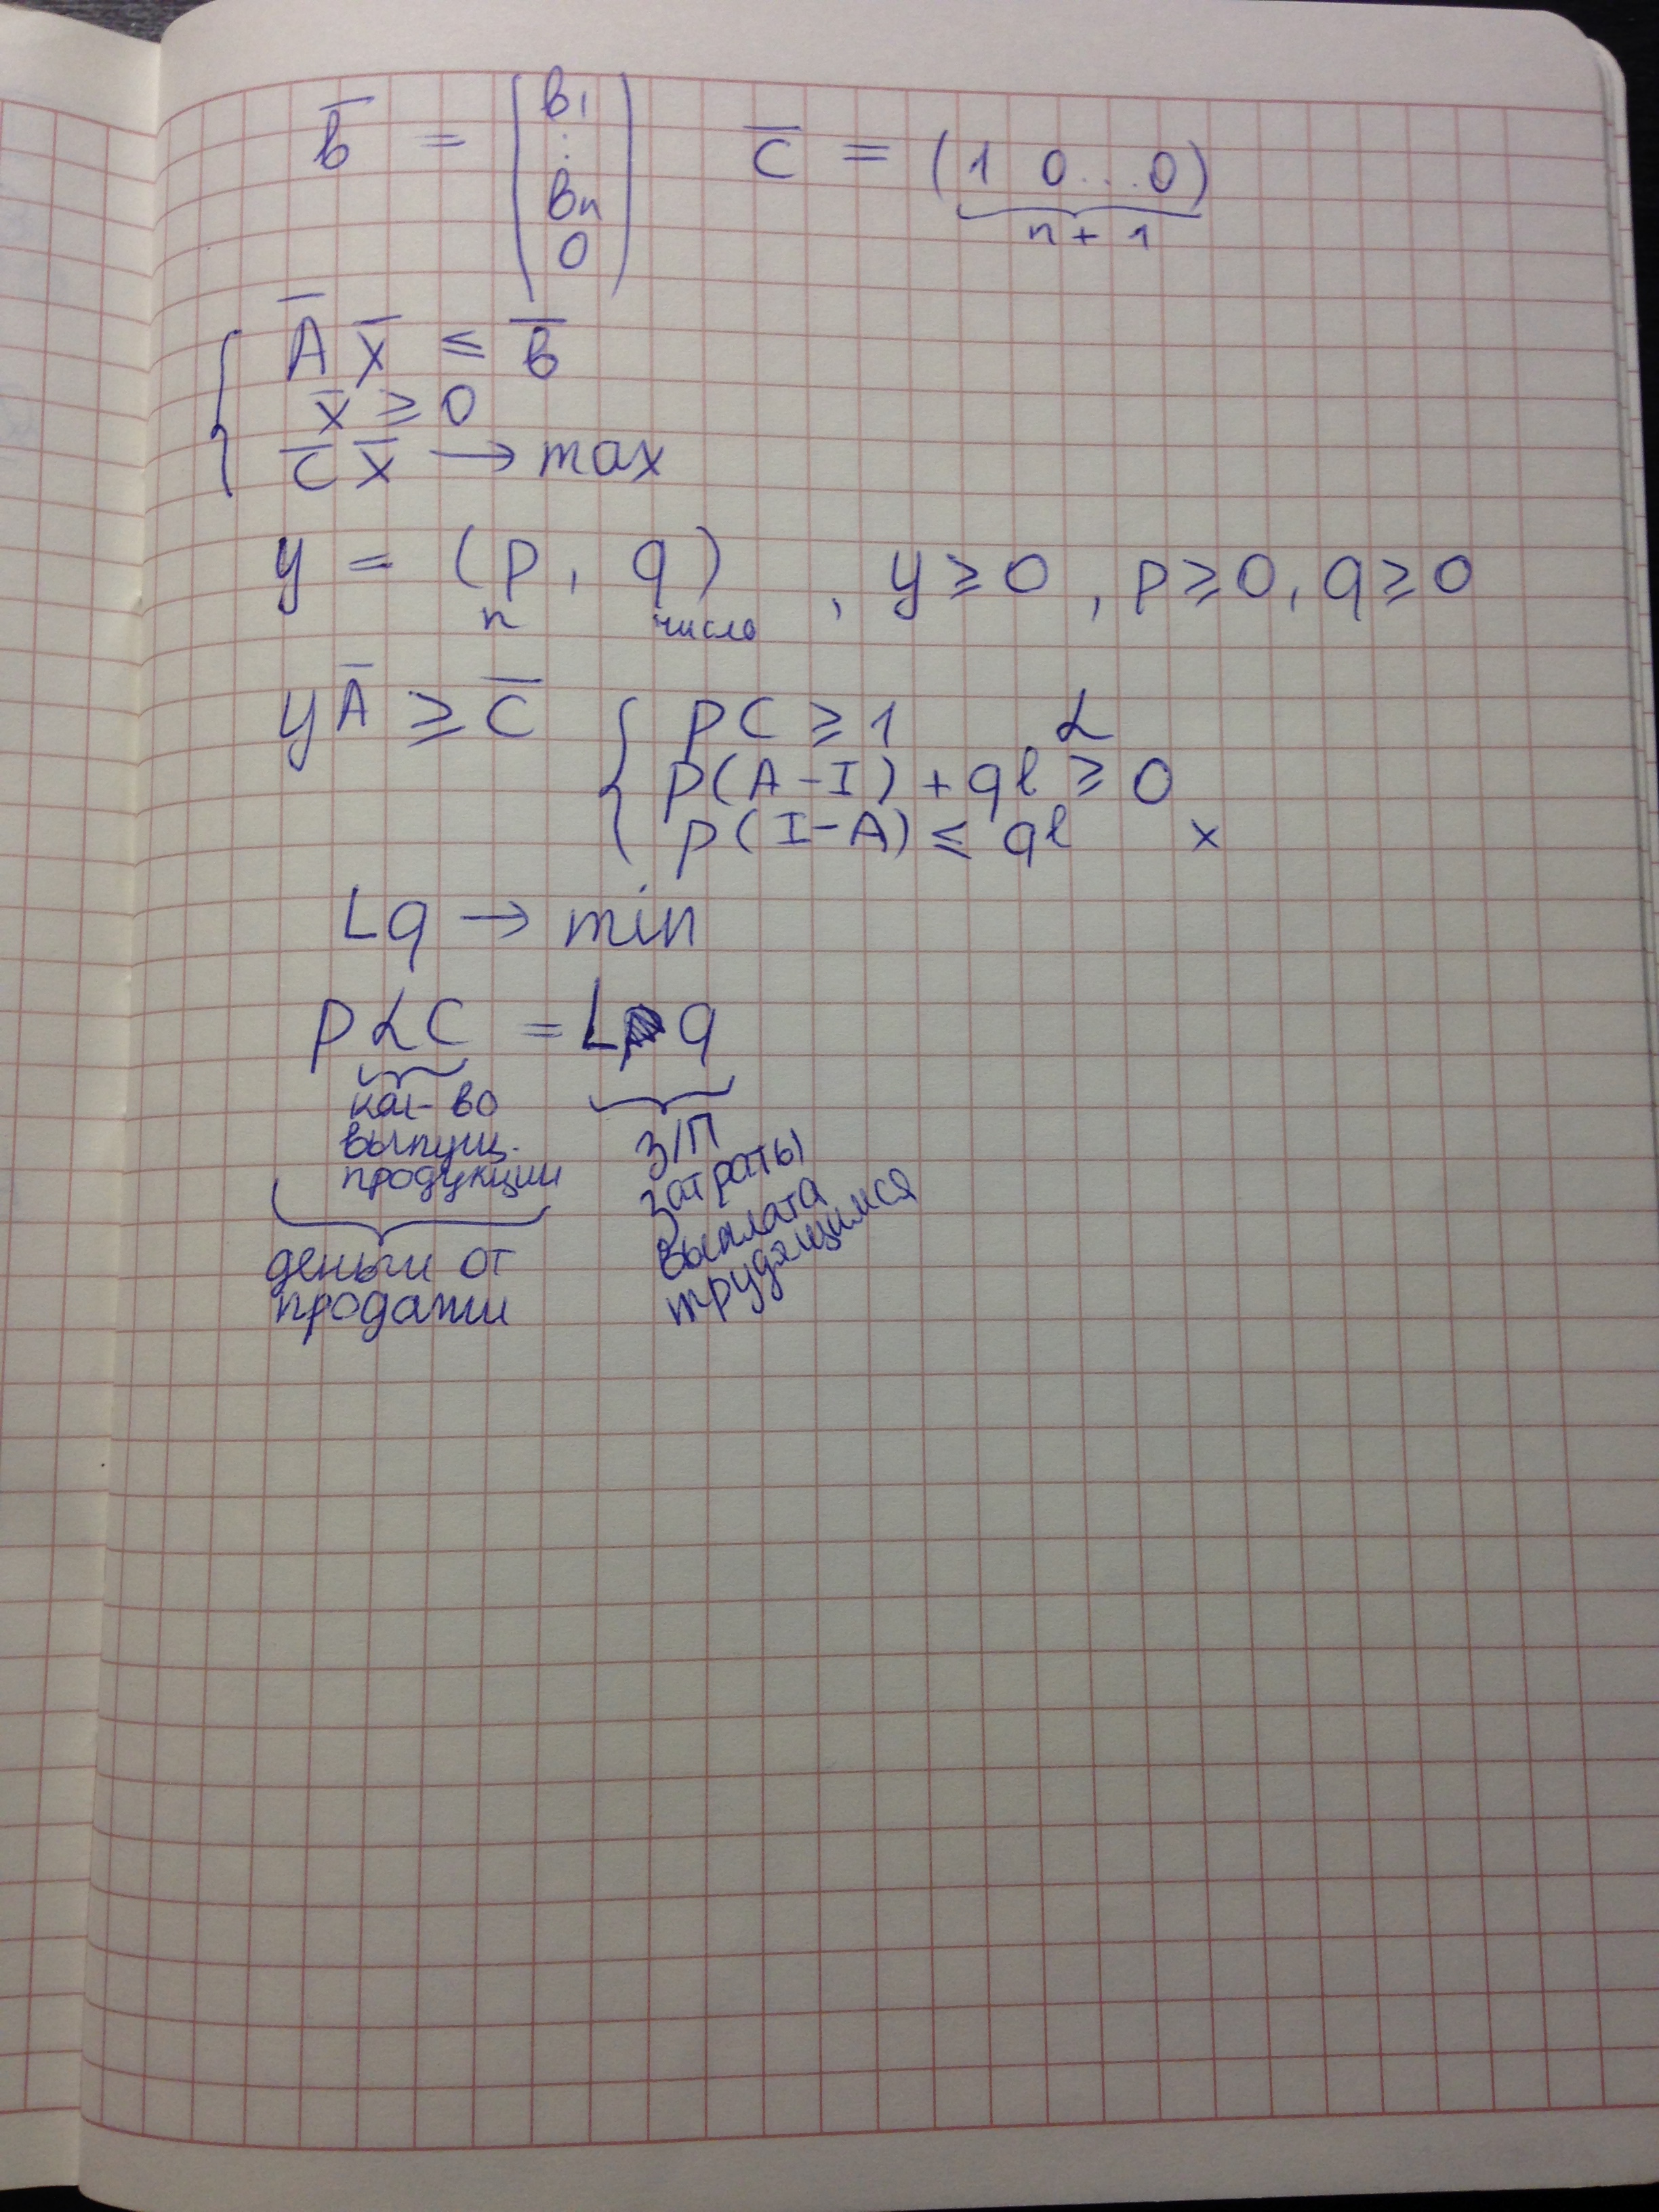 b̅ = (b₁ ⋮ bₙ 0) c̅ = (1 0...0)
n + 1
A̅ x̅ ≤ b̅
x̅ ≥ 0
c̅ x̅ → max
y = (p, q) , y ≥ 0, p ≥ 0, q ≥ 0
n число
y A̅ ≥ c̅ { pC ≥ 1 α
p(A - I) + ql ≥ 0
p(I - A) ≤ ql x
Lq → min
p α C = L q
кол-во
выпущ.
продукции
деньги от
продажи
З/П
затраты
выплата
трудящимся